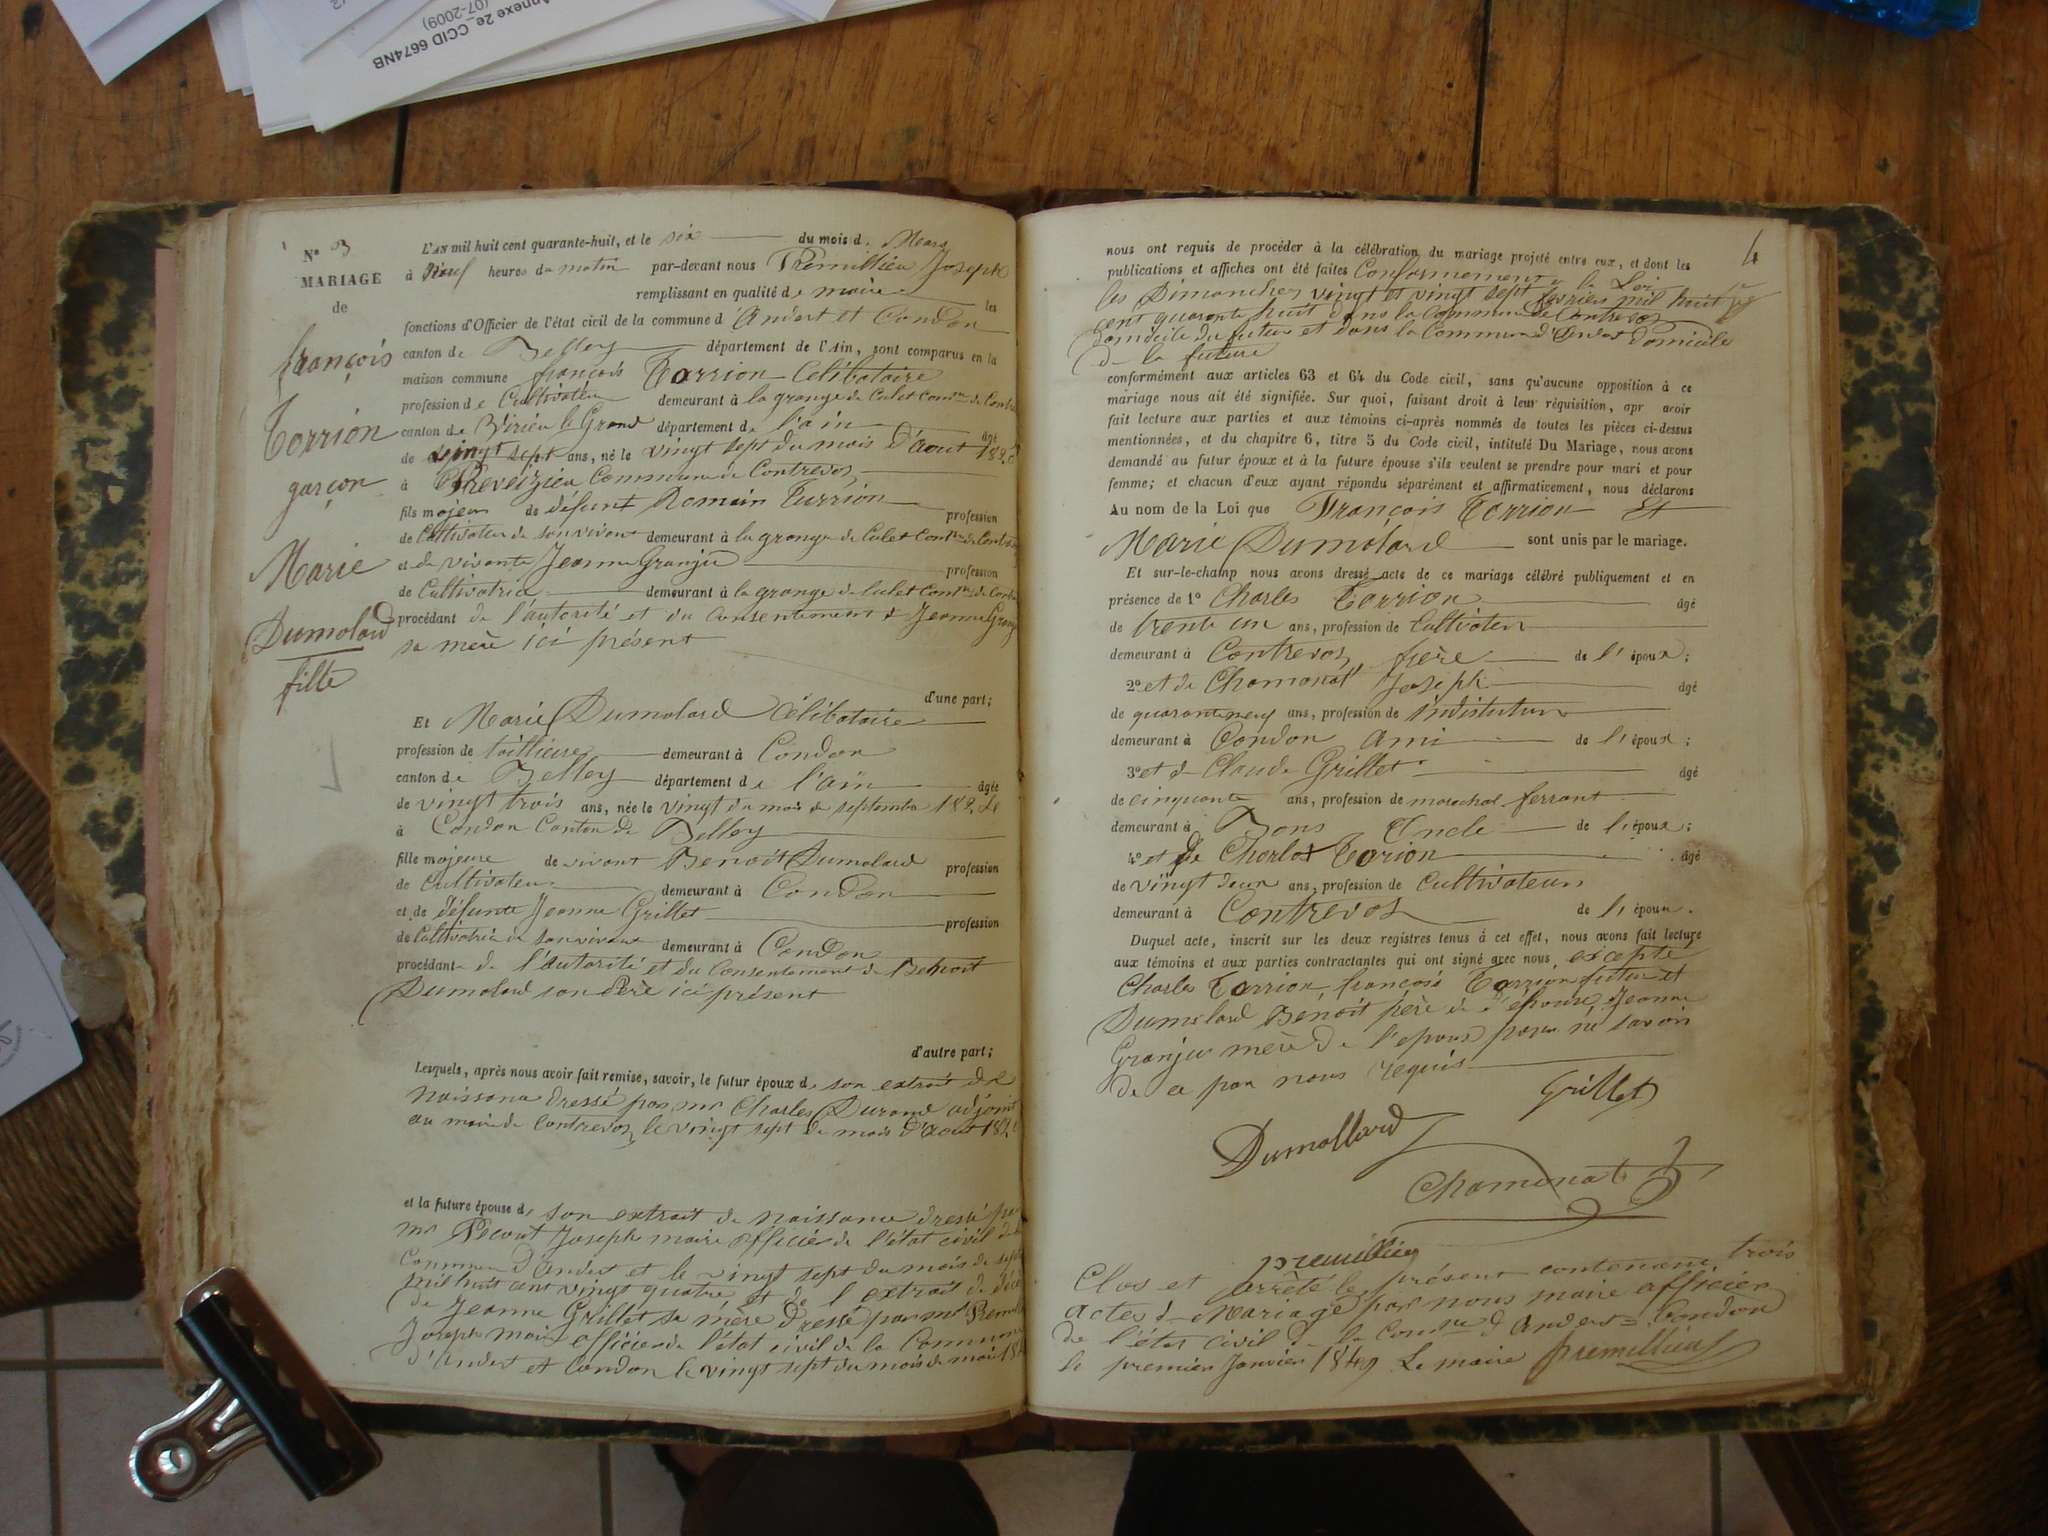 Annexe 2e_CCID 6674NB
(07-2009)
N° 3
MARIAGE
de
françois
Torrion
garçon
Marie
Dumolard
fille
L'AN mil huit cent quarante-huit, et le six du mois d. Mars
à Neuf heures du matin par-devant nous Prémillieu Joseph
remplissant en qualité de maire les
fonctions d'Officier de l'état civil de la commune d'Andert et Condon
canton de Belley département de l'Ain, sont comparus en la
maison commune françois Torrion Célibataire
profession de Cultivateur demeurant à la grange de Culet Comne de Contre
canton de Virieu le Grand département de l'ain âgé
de vingt sept ans, né le vingt sept du mois D'aout 182
à Preveizieu Commune de Contrevoz
fils majeur de défunt Romain Turrion profession
de Cultivateur de son vivant demeurant à la grange de Culet Comne de Contre
et de vivante Jeanne Granjeu profession
de Cultivatrice demeurant à la grange de Culet Comne de Contre
procédant de l'autorité et du consentement de Jeanne Granj
sa mère ici présent
d'une part;
Et Marie Dumolard Célibataire
profession de taillieuse demeurant à Condon
canton de Belley département de l'ain âgée
de vingt trois ans, née le vingt du mois de septembre 182
à Condon Canton de Belley
fille majeure de vivant Benoit Dumolard profession
de Cultivateur demeurant à Condon
et de défunte Jeanne Grillet profession
de Cultivatrice de son vivant demeurant à Condon
procédant de l'autorité et du Consentement de Benoit
Dumolard son père ici présent
d'autre part;
Lesquels, après nous avoir fait remise, savoir, le futur époux d, son extrait de
Naissance dressé par mr Charles Durand adjoint
au maire de Contrevoz le vingt sept du mois d'aout 182
et la future épouse d, son extrait de naissance dressé par
mr Pecout Joseph maire officier de l'état civil de la
Commune d'Andert et le vingt sept du mois de sept
mil huit cent vingt quatre et de l'extrait de décè
de Jeanne Grillet sa mère dressé par mr Premil
Joseph maire officier de l'état civil de la Commune
d'Andert et Condon le vingt sept du mois de mai 18
4
nous ont requis de procéder à la célébration du mariage projeté entre eux, et dont les
publications et affiches ont été faites Conformement à la Loi
les Dimanches vingt et vingt sept fevrier mil huit
cent quarante huit dans la Commune de Contrevoz
domicile du futur et dans la Commune d'Andert domicile
de la future
conformément aux articles 63 et 64 du Code civil, sans qu'aucune opposition à ce
mariage nous ait été signifiée. Sur quoi, faisant droit à leur réquisition, apr avoir
fait lecture aux parties et aux témoins ci-après nommés de toutes les pièces ci-dessus
mentionnées, et du chapitre 6, titre 5 du Code civil, intitulé Du Mariage, nous avons
demandé au futur époux et à la future épouse s'ils veulent se prendre pour mari et pour
femme; et chacun d'eux ayant répondu séparément et affirmativement, nous déclarons
Au nom de la Loi que François Torrion Et
Marie Dumolard sont unis par le mariage.
Et sur-le-champ nous avons dressé acte de ce mariage célébré publiquement et en
présence de 1° Charles Torrion âgé
de trente un ans, profession de Cultivateur
demeurant à Contrevoz frère de l'époux;
2° et de Chamonat Joseph âgé
de quarante neuf ans, profession de instituteur
demeurant à Condon ami de l'époux;
3° et de Claude Grillet âgé
de cinquante ans, profession de marechal ferrant
demeurant à Bons Oncle de l'époux;
4° et de Charles Torion âgé
de vingt deux ans, profession de Cultivateur
demeurant à Contrevoz de l'époux.
Duquel acte, inscrit sur les deux registres tenus à cet effet, nous avons fait lecture
aux témoins et aux parties contractantes qui ont signé avec nous, excepté
Charles Torrion, françois Torrion futur et
Dumolard Benoit père de l'épouse, Jeanne
Granjeu mère de l'époux pour ne savoir
de ce par nous requis
Grillet
Dumollard
Chamonat
premillieu
Clos et arrêté le présent contenant trois
actes de Mariage par nous maire officier
de l'état civil de la Comune d'Andert = Condon
le premier Janvier 1849 Le maire premillieu